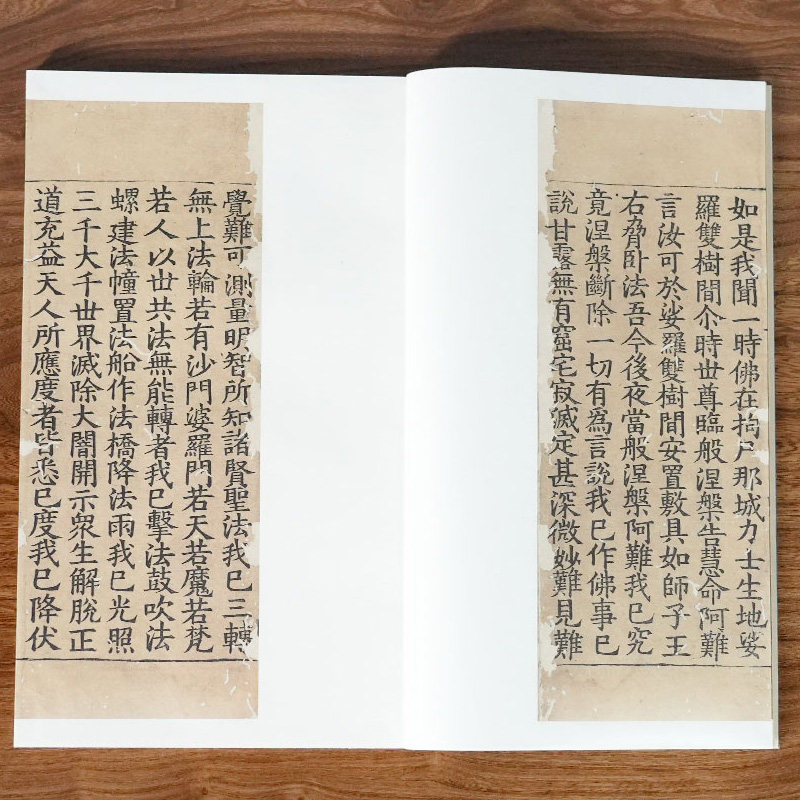 如是我聞一時佛在拘尸那城力士生地娑
羅雙樹間尒時世尊臨般涅槃告慧命阿難
言汝可於娑羅雙樹間安置敷具如師子王
右脅卧法吾今後夜當般涅槃阿難我已究
竟涅槃斷除一切有為言說我已作佛事已
說甘露無有窟宅寂滅定甚深微妙難見難
覺難可測量明智所知諸賢聖法我已三轉
無上法輪若有沙門婆羅門若天若魔若梵
若人以世共法無能轉者我已擊法鼓吹法
螺建法幢置法船作法橋降法雨我已光照
三千大千世界滅除大闇開示衆生解脫正
道充益天人所應度者皆悉已度我已降伏